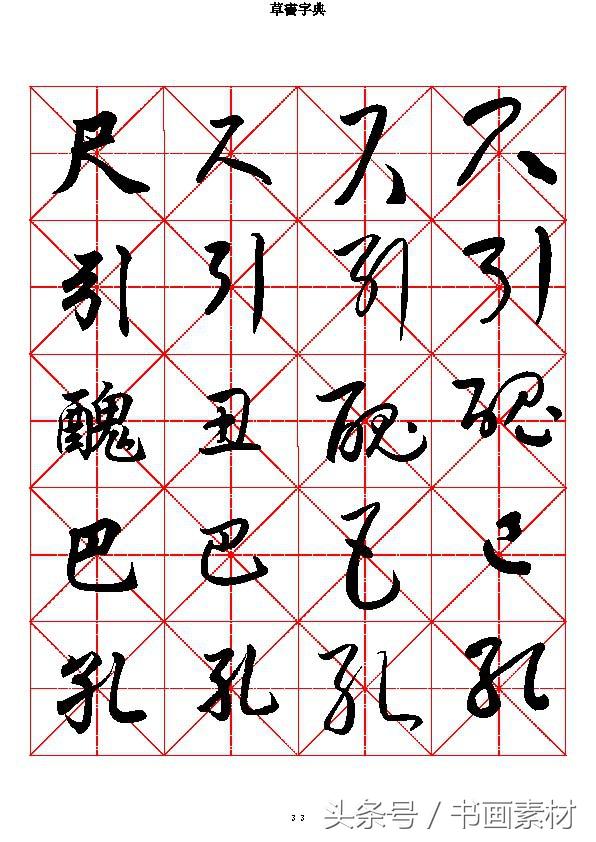 草書字典
尺尺尺尺
引引引引
醜丑醜醜
巴巴巴巴
孔孔孔孔
33
头条号 / 书画素材